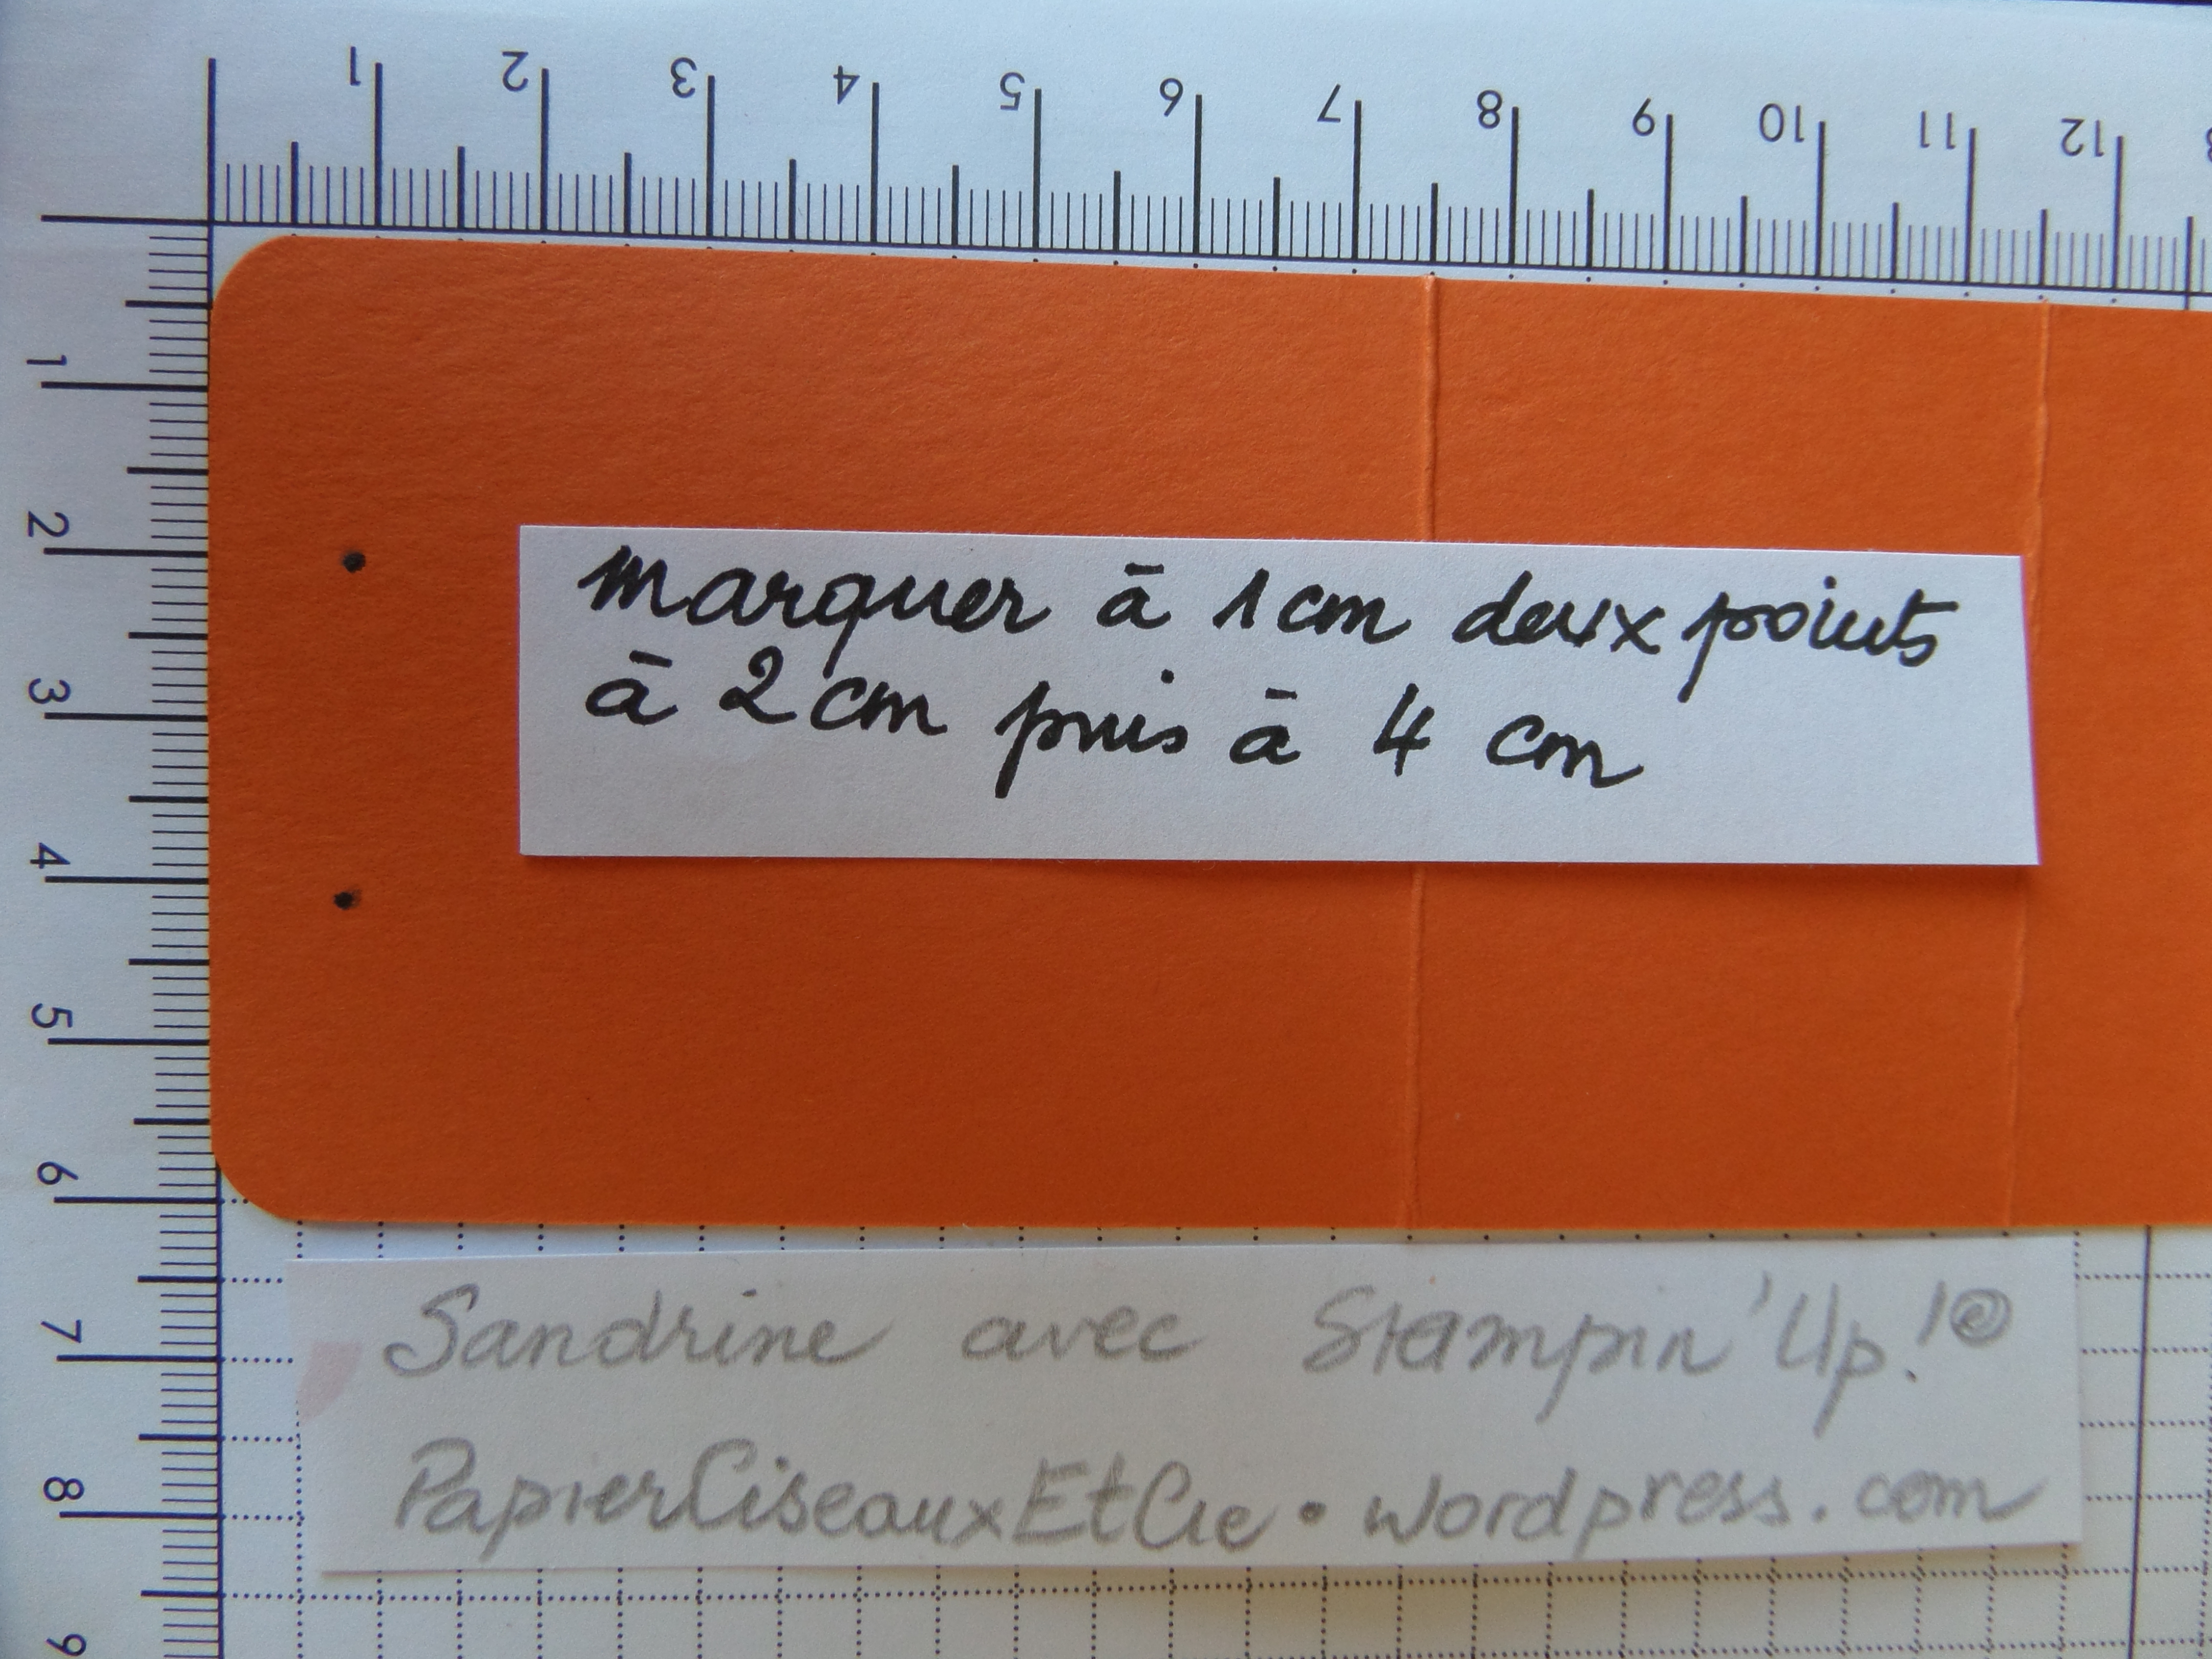 1 2 3 4 5 6 7 8 9 10 11 12
1
2
3
4
5
6
7
8
9
marquer à 1cm deux points
à 2cm puis à 4 cm
Sandrine avec Stampin'Up!©
PapierCiseauxEtCie.wordpress.com